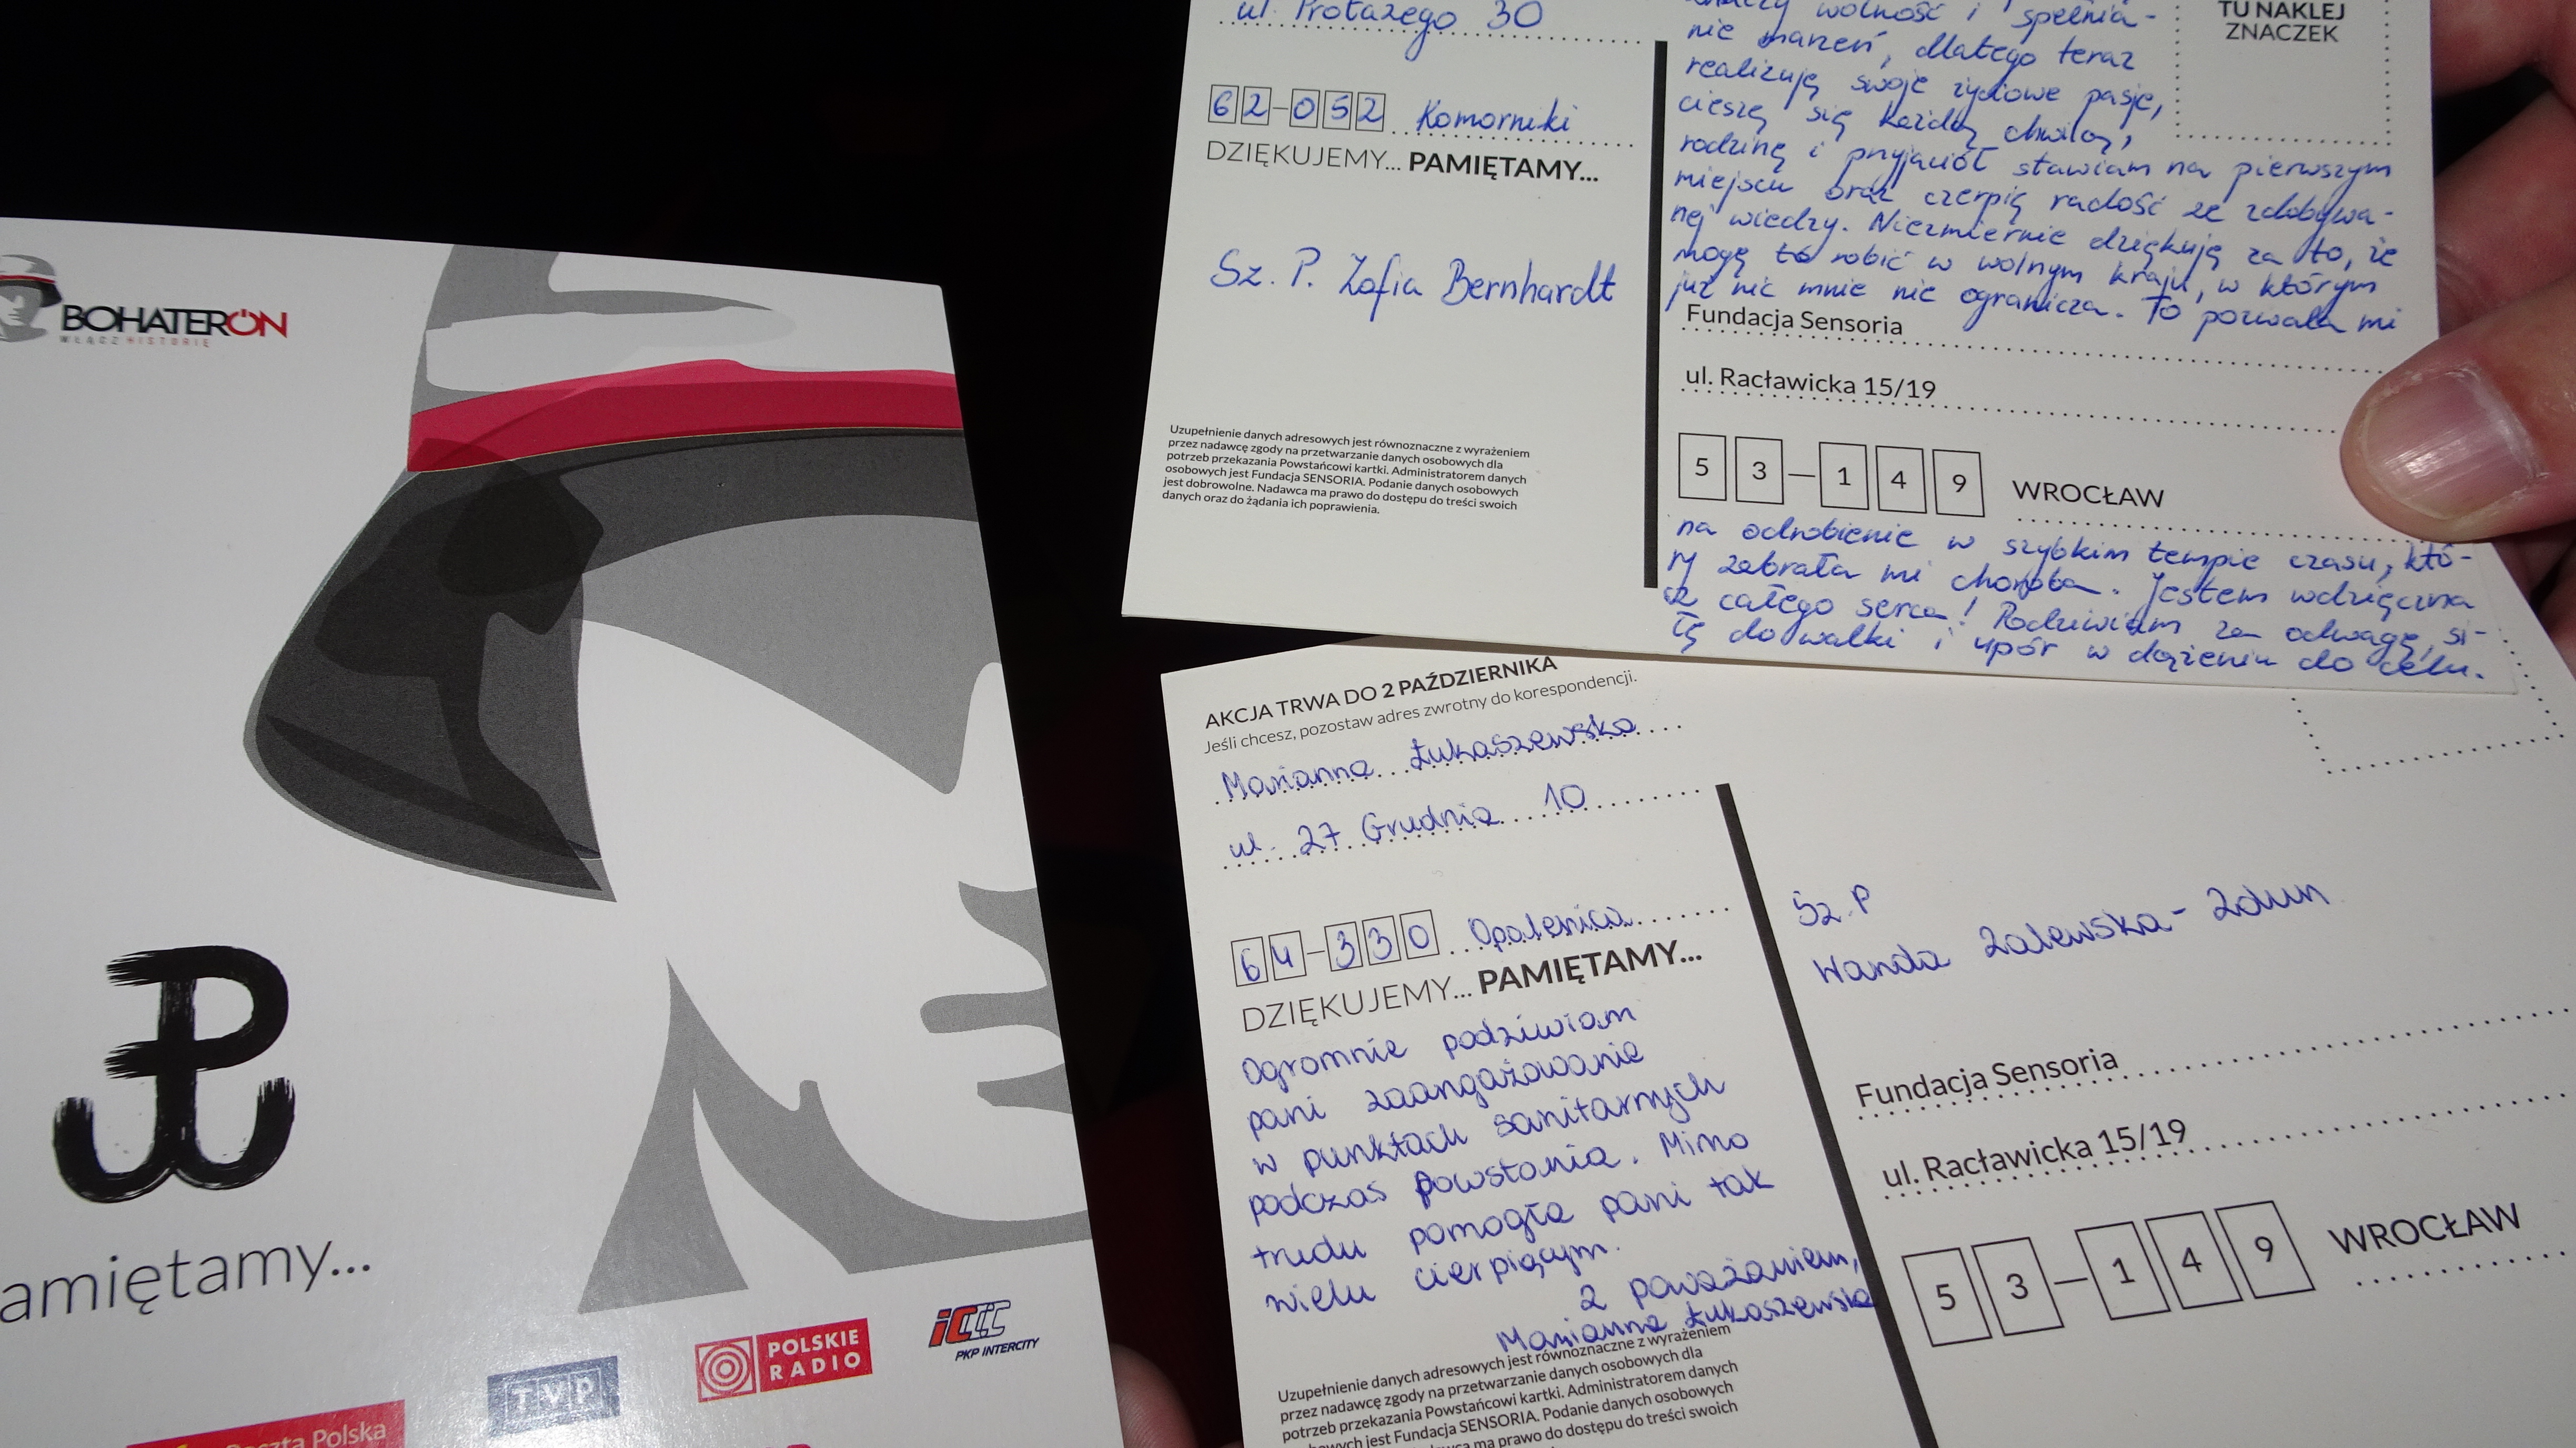 BOHATERON
WŁĄCZ HISTORIĘ
amiętamy...
Poczta Polska
TVP
POLSKIE
RADIO
PKP INTERCITY
ul. Protazego 30
62-052 Komorniki
DZIĘKUJEMY... PAMIĘTAMY...
Sz. P. Zofia Bernhardt
Uzupełnienie danych adresowych jest równoznaczne z wyrażeniem
przez nadawcę zgody na przetwarzanie danych osobowych dla
potrzeb przekazania Powstańcowi kartki. Administratorem danych
osobowych jest Fundacja SENSORIA. Podanie danych osobowych
jest dobrowolne. Nadawca ma prawo do dostępu do treści swoich
danych oraz do żądania ich poprawienia.
TU NAKLEJ
ZNACZEK
wolność i spełnia-
nie marzeń, dlatego teraz
realizuję swoje życiowe pasje,
cieszę się każdą chwilą,
rodzinę i przyjaciół stawiam na pierwszym
miejscu oraz czerpię radość ze zdobywa-
nej wiedzy. Niezmiernie dziękuję za to, że
mogę to robić w wolnym kraju, w którym
już nic mnie nie ogranicza. To pozwala mi
Fundacja Sensoria
ul. Racławicka 15/19
53-149 WROCŁAW
na odrobienie w szybkim tempie czasu, któ-
ry zabrała mi choroba. Jestem wdzięczna
z całego serca! Podziwiam za odwagę, si-
łę do walki i upór w dążeniu do celu.
AKCJA TRWA DO 2 PAŹDZIERNIKA
Jeśli chcesz, pozostaw adres zwrotny do korespondencji.
Marianna Łukaszewska
ul. 27 Grudnia 10
64-330 Opalenica
DZIĘKUJEMY... PAMIĘTAMY...
Ogromnie podziwiam
pani zaangażowanie
w punktach sanitarnych
podczas powstania. Mimo
trudu pomogła pani tak
wielu cierpiącym.
Z poważaniem,
Marianna Łukaszewska
Uzupełnienie danych adresowych jest równoznaczne z wyrażeniem
przez nadawcę zgody na przetwarzanie danych osobowych dla
potrzeb przekazania Powstańcowi kartki. Administratorem danych
osobowych jest Fundacja SENSORIA. Podanie danych osobowych
ma prawo do dostępu do treści swoich
Sz. P
Wanda Zalewska-Zdun
Fundacja Sensoria
ul. Racławicka 15/19
53-149 WROCŁAW